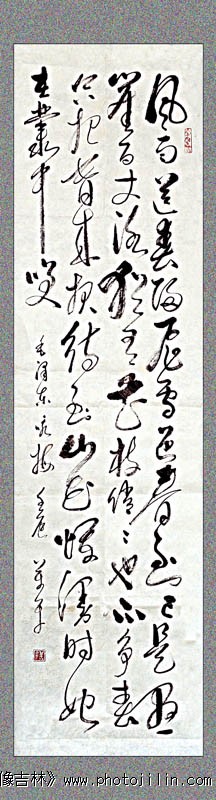 风雨送春归飞雪迎春到已是悬
崖百丈冰犹有花枝俏〻也不争春
只把春来报待到山花烂漫时她
在丛中笑
毛泽东咏梅
像吉林》 www.photojilin.com